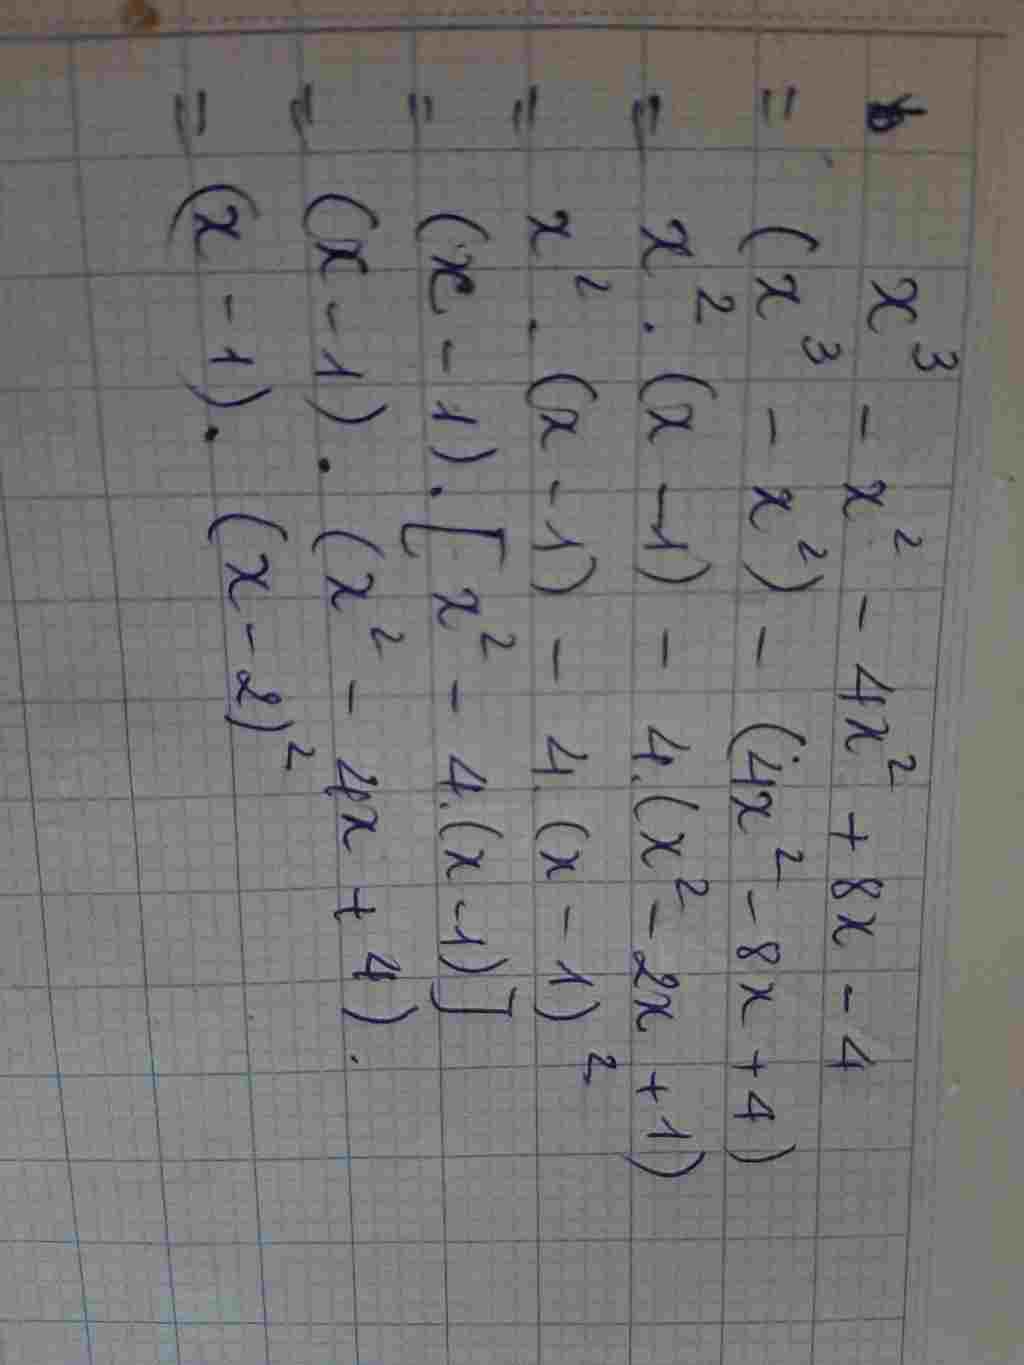 x³ - x² - 4x² + 8x - 4
= (x³ - x²) - (4x² - 8x + 4)
= x² . (x - 1) - 4.(x² - 2x + 1)
= x² . (x - 1) - 4.(x - 1)²
= (x - 1).[x² - 4.(x - 1)]
= (x - 1).(x² - 4x + 4).
= (x - 1).(x - 2)²